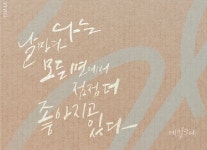 날마다 나는
모든 면에서
점점 더
좋아지고
있다
에밀쿠에